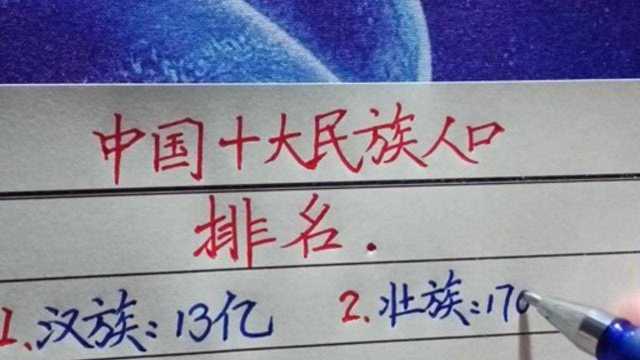 中国十大民族人口
排名.
1.汉族:13亿 2.壮族:170